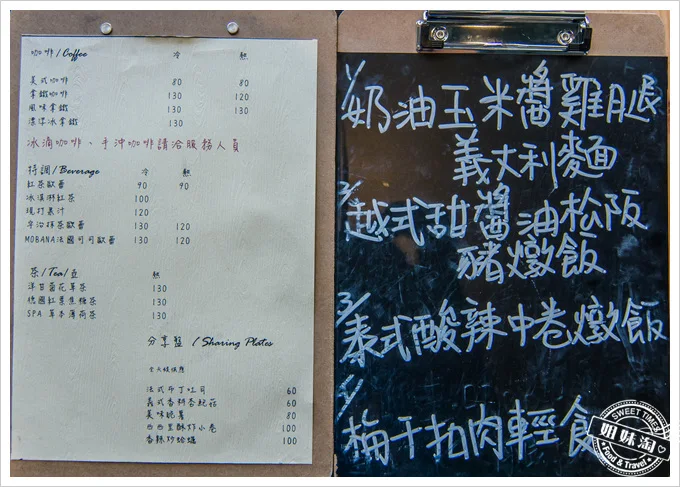 咖啡/Coffee 冷 熱
美式咖啡 80 80
拿鐵咖啡 130 120
風味拿鐵 130 130
漂浮冰拿鐵 130
冰滴咖啡、手沖咖啡請洽服務人員
特調/Beverage 冷 熱
紅茶歐蕾 90 90
冰淇淋紅茶 100
現打果汁 120
宇治抹茶歐蕾 130 120
MOBANA法國可可歐蕾 130 120
茶/Tea/壺 熱
洋甘菊花草茶 130
德國紅葉焦糖茶 130
SPA 草本薄荷茶 130
分享盤 /Sharing Plates
法式布丁吐司 60
義式香料杏鮑菇 60
美味脆薯 80
西西里酥炒小卷 100
香蒜炒蛤蠣 100
1/奶油玉米醬雞腿
義大利麵
2/越式甜醬油松阪
豬燉飯
3/泰式酸辣中卷燉飯
梅干扣肉輕食
SWEET TIMES
姐妹淘
Food & Travel